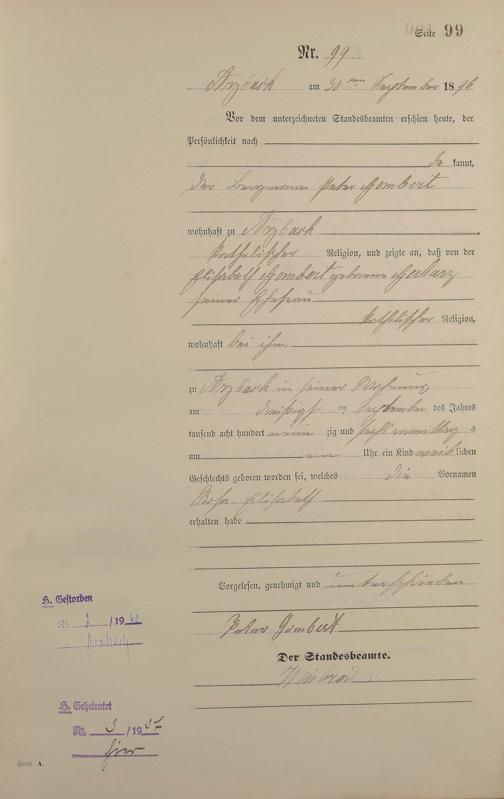 Seite 99
Nr. 99
Arzbach am 30ten September 1896
Vor dem unterzeichneten Standesbeamten erschien heute, der
Persönlichkeit nach
be kannt,
der Bergmann Peter Gombert
wohnhaft zu Arzbach
katholischer Religion, und zeigte an, daß von der
Elisabeth Gombert geborene
seiner Ehefrau
katholischer Religion,
wohnhaft bei ihm
zu Arzbach in seiner Wohnung
am dreißigsten September des Jahres
tausend acht hundert neun zig und sechs Vormittags
um ein Uhr ein Kind weiblichen
Geschlechts geboren worden sei, welches die Vornamen
Rosa Elisabeth
erhalten habe
Vorgelesen, genehmigt und unterschrieben
Peter Gombert
Der Standesbeamte.
Weisbrod
H. Gestorben
Nr. 2 /19
Arzbach
H. Geheiratet
Nr. 3 /19 37
hier
Form. A.